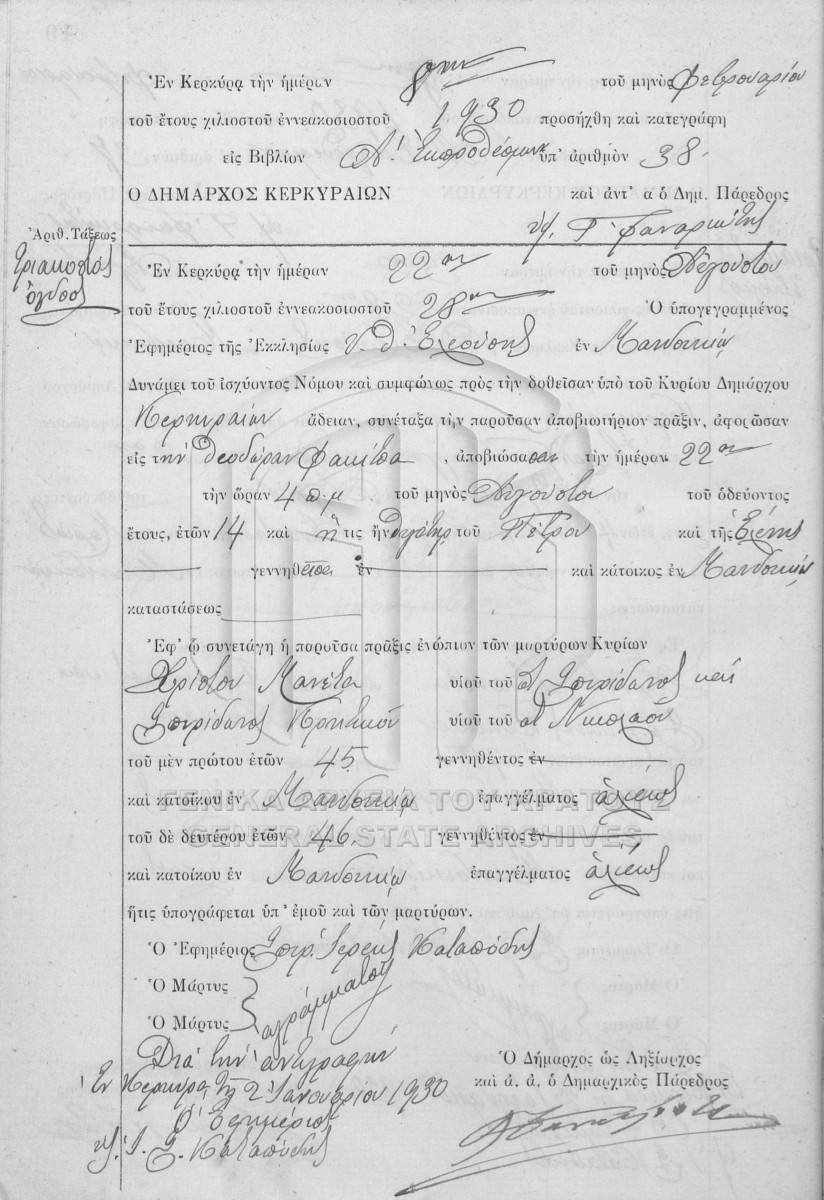 Ἐν Κερκύρᾳ τὴν ἡμέραν 8ην τοῦ μηνὸς Φεβρουαρίου
τοῦ ἔτους χιλιοστοῦ ἐννεακοσιοστοῦ 1930 προσήχθη καὶ κατεγράφη
εἰς Βιβλίον Α! Ἐκπροθέσμων ὑπ' ἀριθμὸν 38.
Ο ΔΗΜΑΡΧΟΣ ΚΕΡΚΥΡΑΙΩΝ καὶ ἀντ' α ὁ Δημ. Πάρεδρος
Γ. Φαναριώτης
Ἀριθ. Τάξεως
τριακοστός
ὄγδοος
Ἐν Κερκύρᾳ τὴν ἡμέραν 22αν τοῦ μηνὸς Αὐγούστου
τοῦ ἔτους χιλιοστοῦ ἐννεακοσιοστοῦ 28ου Ὁ ὑπογεγραμμένος
Ἐφημέριος τῆς Ἐκκλησίας Υ. Θ. Ἐλεούσης ἐν Μανδουκίῳ
Δυνάμει τοῦ ἰσχύοντος Νόμου καὶ συμφώνως πρὸς τὴν δοθεῖσαν ὑπὸ τοῦ Κυρίου Δημάρχου
Κερκυραίων ἄδειαν, συνέταξα τὴν παροῦσαν ἀποβιωτήριον πρᾶξιν, ἀφορῶσαν
εἰς τὴν Θεοδώραν Φακίτσα, ἀποβιώσασαν τὴν ἡμέραν 22αν
τὴν ὥραν 4 π.μ τοῦ μηνὸς Αὐγούστου τοῦ ὁδεύοντος
ἔτους, ἐτῶν 14 καὶ ἥτις ἦν θυγάτηρ τοῦ Πέτρου καὶ τῆς Ἑλένης
γεννηθεῖσα ἐν καὶ κάτοικος ἐν Μανδουκίῳ
καταστάσεως
Ἐφ' ᾧ συνετάγη ἡ παροῦσα πρᾶξις ἐνώπιον τῶν μαρτύρων Κυρίων
Χρίστου Μανέτα υἱοῦ τοῦ Σπυρίδωνος καὶ
Σπυρίδωνος Κρητικοῦ υἱοῦ τοῦ Νικολάου
τοῦ μὲν πρώτου ἐτῶν 45 γεννηθέντος ἐν
καὶ κατοίκου ἐν Μανδουκίῳ ἐπαγγέλματος ἁλιέως
ΓΕΝΙΚΑ ΑΡΧΕΙΑ ΤΟΥ ΚΡΑΤΟΥΣ
τοῦ δὲ δευτέρου ἐτῶν 46 γεννηθέντος ἐν
GENERAL STATE ARCHIVES
καὶ κατοίκου ἐν Μανδουκίῳ ἐπαγγέλματος ἁλιέως
ἥτις ὑπογράφεται ὑπ' ἐμοῦ καὶ τῶν μαρτύρων.
Ὁ Ἐφημέριος Σπυρ. Ἱερεὺς Καταπόδης
Ὁ Μάρτυς
Ὁ Μάρτυς ἀγράμματοι
Διὰ τὴν ἀντιγραφήν
Ἐν Κερκύρᾳ τῇ 2 Ἰανουαρίου 1930
Ὁ Ἐφημέριος
Ι. Σ. Καταπόδης
Ὁ Δήμαρχος ὡς Ληξίαρχος
καὶ ἀ. ἀ. ὁ Δημαρχικὸς Πάρεδρος